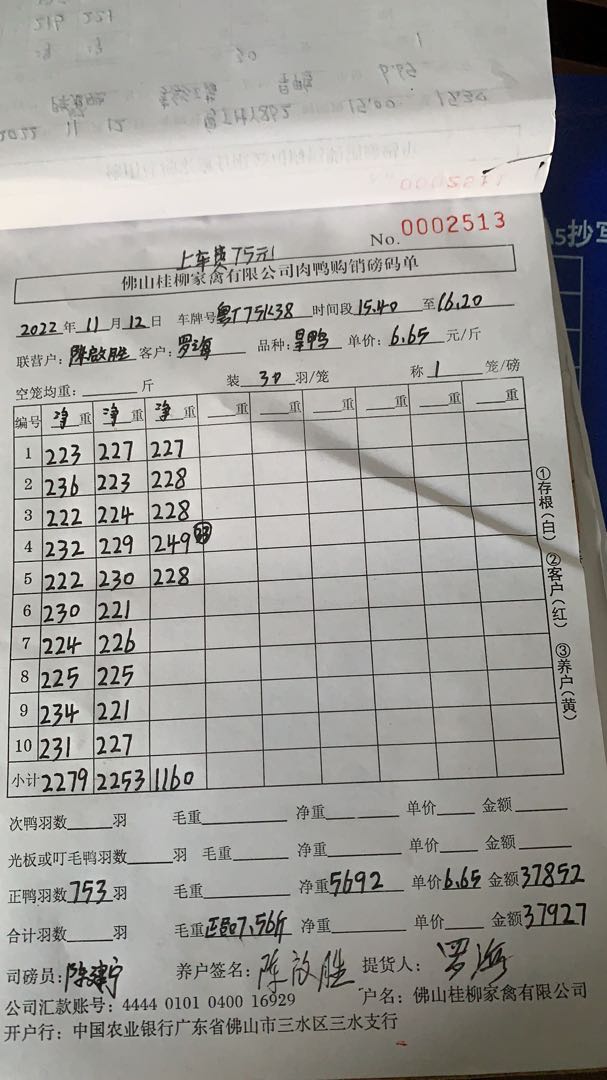 No. 0002513
上车费75元
佛山桂柳家禽有限公司肉鸭购销磅码单
2022年11月12日 车牌号粤T75K38 时间段15.40至16.20
联营户:陈啟胜 客户:罗海 品种: 单价:6.65元/斤
空笼均重:______斤 装30羽/笼 称1笼/磅
编号 净重 净重 净重 ___重 ___重 ___重 ___重 ___重 ___重
1 223 227 227
2 236 223 228
3 222 224 228
4 232 229 249 33
5 222 230 228
6 230 221
7 224 226
8 225 225
9 234 221
10 231 227
小计 2279 2253 1160
①存根(白) ②客户(红) ③养户(黄)
次鸭羽数_____羽 毛重_________ 净重_________ 单价____ 金额______
光板或叮毛鸭羽数_____羽 毛重_________ 净重_________ 单价____ 金额______
正鸭羽数753羽 毛重_________ 净重5692 单价6.65 金额37852
合计羽数_____羽 毛重 7.56斤 净重_________ 单价____ 金额37927
司磅员:陈建宁 养户签名:陈啟胜 提货人:罗海
公司汇款账号:4444 0101 0400 16929 户名:佛山桂柳家禽有限公司
开户行:中国农业银行广东省佛山市三水区三水支行
A5抄写